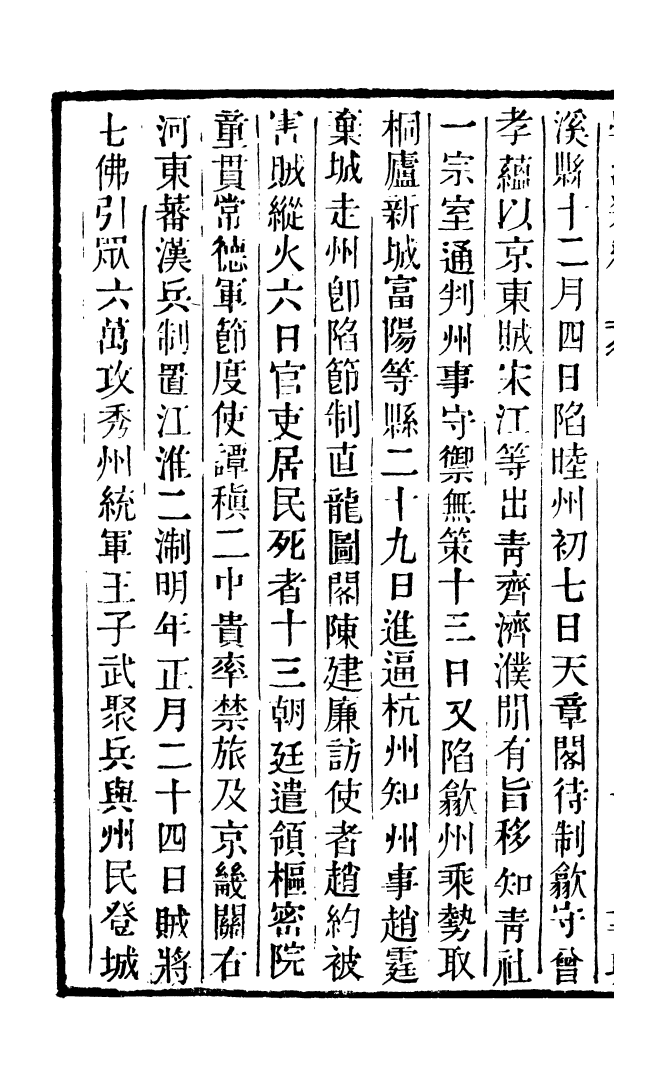 溪縣十二月四日陷睦州初七日天章閣待制歙守曾
孝蘊以京東賊宋江等出青齊濟濮間有旨移知青社
一宗室通判州事守禦無策十三日又陷歙州乘勢取
桐廬新城富陽等縣二十九日進逼杭州知州事趙霆
棄城走州卽陷節制直龍圖閣陳建廉訪使者趙約被
害賊縱火六日官吏居民死者十三朝廷遣領樞密院
童貫常德軍節度使譚稹二中貴率禁旅及京畿關右
河東蕃漢兵制置江淮二淛明年正月二十四日賊將
七佛引眾六萬攻秀州統軍王子武聚兵與州民登城